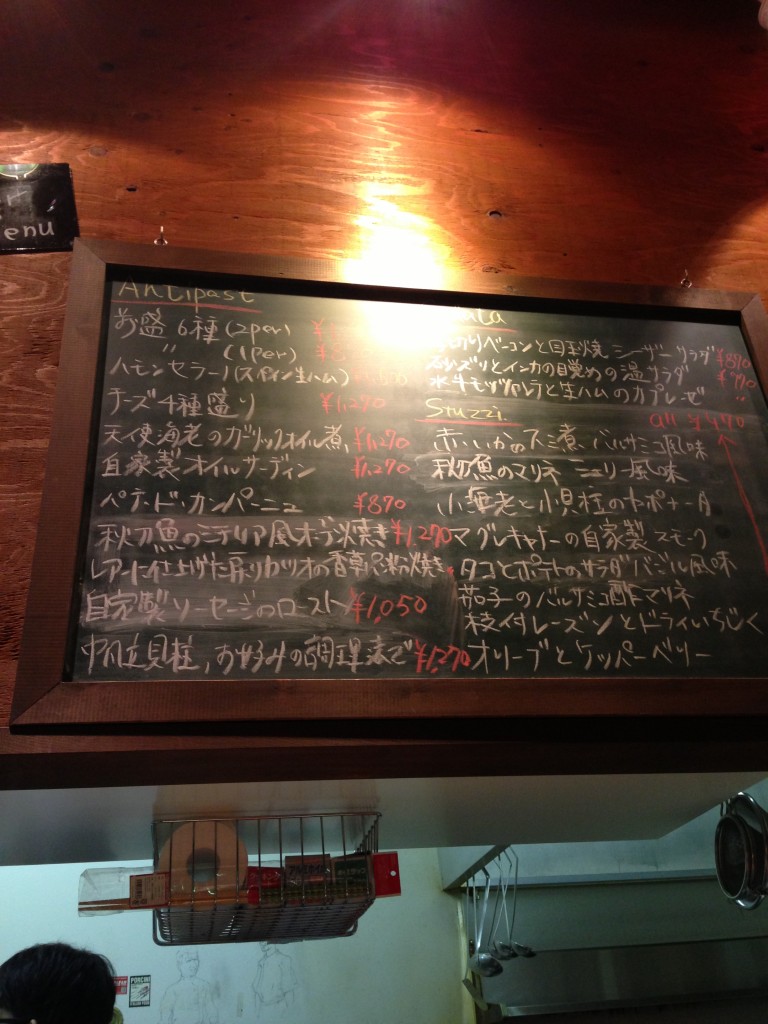 enú
Antipast
お盛 6種 (2per)
〃 (1per)
ハモンセラーノ(スペイン生ハム)
チーズ4種盛り ¥1,270
天使海老のガーリックオイル煮 ¥1,270
自家製オイルサーディン ¥1,270
パテ・ド・カンパーニュ ¥890
秋刀魚のシチリア風オーブン焼き ¥1,270
レアーに仕上げた戻りカツオの香草パン粉焼き
自家製ソーセージのロースト ¥1,050
帆立貝柱,お好みの調理法で ¥1,270
切りベーコンと国玉焼 シーザーサラダ ¥890
とインカの目覚めの温サラダ ¥790
水牛モッツァレラと生ハムのカプレーゼ 〃
Stuzzi
all ¥490
赤いかのスミ煮 バルサミコ風味
秋刀魚のマリネ シェリー風味
小海老と小貝柱のカポナータ
マグレキャナーの自家製スモーク
タコとポテトのサラダ バジル風味
茄子のバルサミコ酢マリネ
枝付レーズンとドライいちじく
オリーブとケッパーベリー
PORCINI